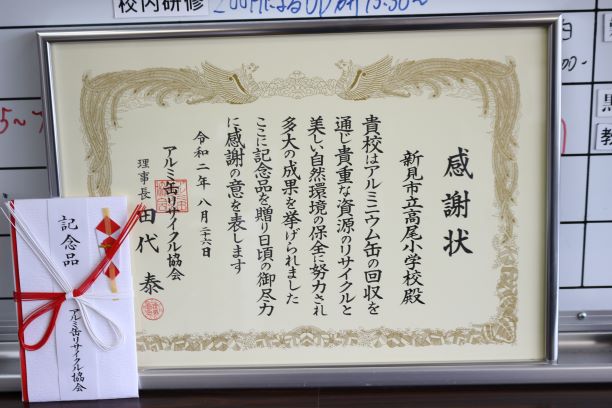 校内研修
感謝状
新見市立高尾小学校殿
貴校はアルミニウム缶の回収を
通じ貴重な資源のリサイクルと
美しい自然環境の保全に努力され
多大の成果を挙げられました
ここに記念品を贈り日頃の御尽力
に感謝の意を表します
令和二年八月二十六日
アルミ缶リサイクル協会
理事長 田代 泰
記念品
アルミ缶リサイクル協会